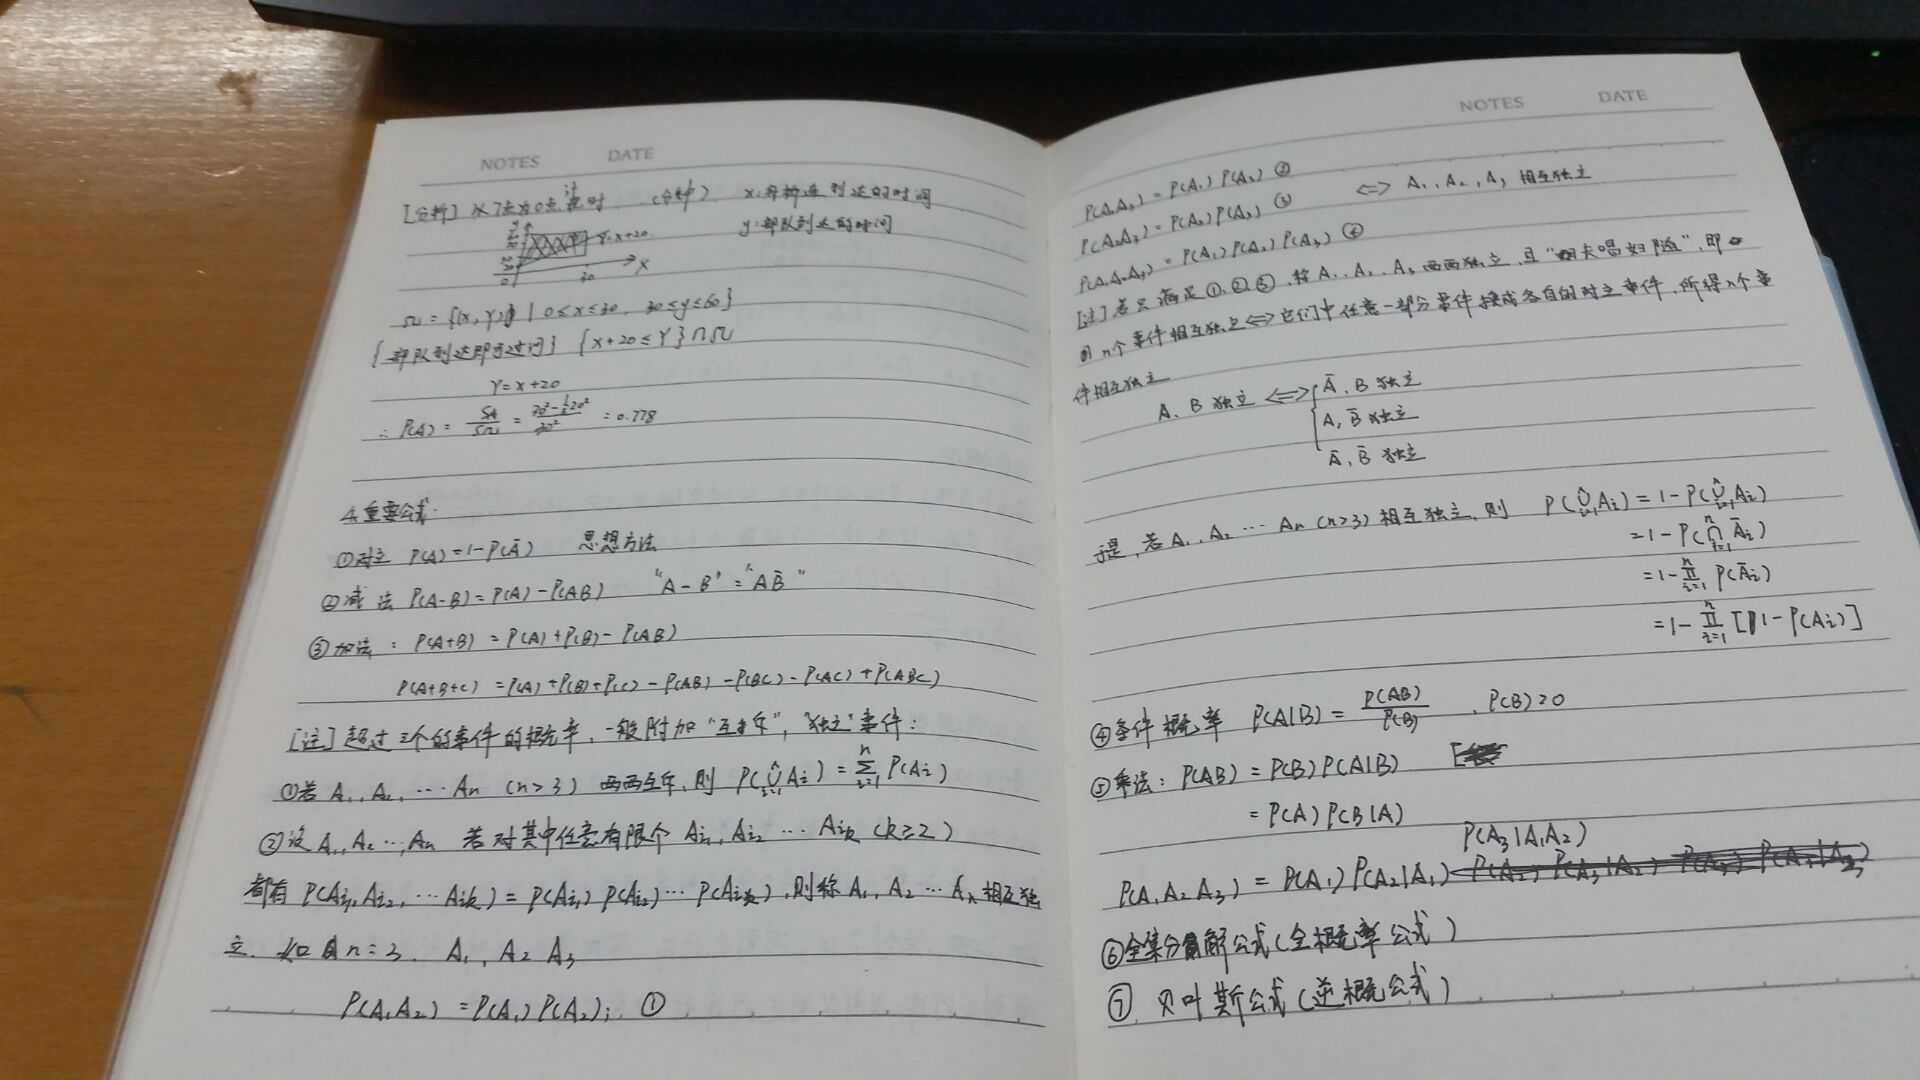 NOTES DATE
[分析] 以7点为0点 计时 (分钟) x:炸桥连到达的时间
y:部队到达的时间
Y=x+20
30
X
0
Ω = {(x, y) | 0≤x≤30, 30≤y≤60}
{部队到达即可过河} {x+20≤Y}∩Ω
Y=x+20
∴ P(A) = SA/SΩ = (30²-½20²)/30² = 0.778
4.重要公式:
①对立 P(A)=1-P(Ā) 思想方法
②减法 P(A-B)=P(A)-P(AB) "A-B"="AB̄"
③加法: P(A+B)=P(A)+P(B)-P(AB)
P(A+B+C)=P(A)+P(B)+P(C)-P(AB)-P(BC)-P(AC)+P(ABC)
[注]超过三个的事件的概率,一般附加"互斥","独立"事件:
①若 A₁, A₂, ⋯ Aₙ (n>3) 两两互斥,则 P(⋃ⁿᵢ₌₁Aᵢ)=∑ⁿᵢ₌₁P(Aᵢ)
②设 A₁, A₂ ⋯, Aₙ 若对其中任意有限个 Ai₁, Ai₂ ⋯ Aiₖ (k≥2)
都有 P(Ai₁, Ai₂, ⋯ Aiₖ)=P(Ai₁) P(Ai₂)⋯ P(Aiₖ),则称 A₁, A₂ ⋯ Aₙ 相互独
立. 如 n=3. A₁, A₂ A₃
P(A₁A₂)=P(A₁) P(A₂); ①
NOTES DATE
P(A₁A₃)=P(A₁) P(A₃) ②
P(A₂A₃)=P(A₂)P(A₃) ③ <=> A₁, A₂, A₃ 相互独立
P(A₁A₂A₃)=P(A₁)P(A₂)P(A₃) ④
[注]若只满足①,②,③,称 A₁, A₂, A₃ 两两独立,且"夫唱妇随",即
n个事件相互独立<=>它们中任意一部分事件换成各自的对立事件,所得n个事
件相互独立
A、B 独立 <=> { Ā, B 独立
A, B̄ 独立
Ā, B̄ 独立
于是,若 A₁, A₂ ⋯ Aₙ (n>3) 相互独立,则 P(⋃ⁿᵢ₌₁Aᵢ)=1-P(⋃ⁿᵢ₌₁Aᵢ)
=1-P(⋂ⁿᵢ₌₁Āᵢ)
=1-∏ⁿᵢ₌₁P(Āᵢ)
=1-∏ⁿᵢ₌₁[1-P(Aᵢ)]
④条件概率 P(A|B)=P(AB)/P(B), P(B)>0
⑤乘法: P(AB)=P(B)P(A|B)
=P(A)P(B|A)
P(A₃|A₁A₂)
P(A₁A₂A₃)=P(A₁)P(A₂|A₁)
⑥全集分解公式(全概率公式)
⑦ 贝叶斯公式(逆概公式)